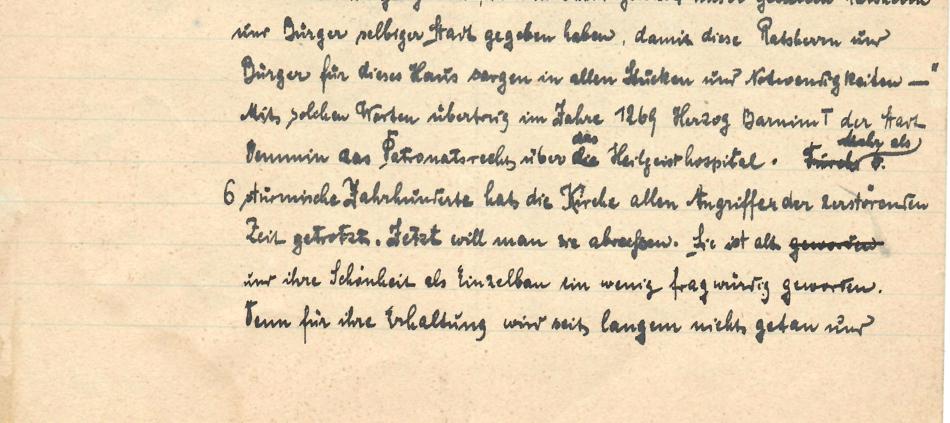 und Bürger selbiger Stadt gegeben haben, damit diese Ratsherrn und
Bürger für dieses Haus sorgen in allen Stücken und Notwendigkeiten —"
Mit solchen Worten übertrug im Jahre 1269 Herzog Barnim I der Stadt
Demmin das Patronatsrecht über das Heilgeisthospital. Mehr als
6 stürmische Jahrhunderte hat die Kirche allen Angriffen der zerstörenden
Zeit getrotzt. Jetzt will man sie abreißen. Sie ist alt geworden
und ihre Schönheit als Einzelbau ein wenig fragwürdig geworden.
Denn für ihre Erhaltung wird seit langem nichts getan und